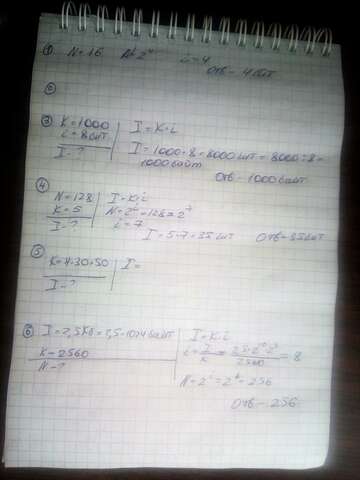 ① N=16 N=2ⁱ i=4
Отв – 4 бит
②
③ K=1000 I=K·i
i=8 бит I=1000·8=8000 бит=8000:8=
I–? 1000 байт
Отв – 1000 байт
④
N=128 I=K·i
K=5 N=2ⁱ=128=2⁷
I–? i=7
I=5·7=35 бит Отв–35 бит
⑤
K=4·30·50 I=
I–?
⑥ I=2,5Кб=2,5·1024 байт I=K·i
K–2560 i=I/K=2,5·2¹⁰·2³/2560=8
N–?
N=2ⁱ=2⁸=256
Отв – 256